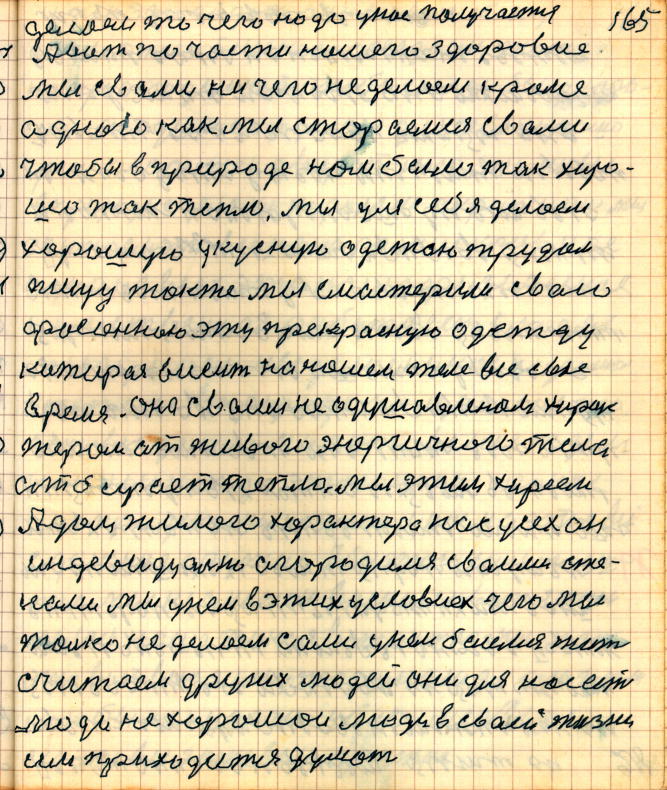 делаем то чего надо унас получается 165
Авот по части нашего здоровие
мы свами ни чего неделаем кроме
адного как мы стораемся свами
чтобы в природе намбыло так хоро-
шо так тепло, мы для себя делаем
хорошую укусную одежаю трудом
пищу также мы смастерили свою
фасонною эту прекрасную одежду
которая висит на нашем теле все свое
время. она своим не одушавленом харак
тером от живого энергичного тела
отбирает тепло. мы этим хвореем
Адом жилого характера нас усех он
индевидуално огородился своими сте-
нами мы унем в этих условиех чего мы
толко не делаем сами унем боимся жит
считаем других людей они для нас ест
люди не хорошои люди в своей жизни
им приходится думат